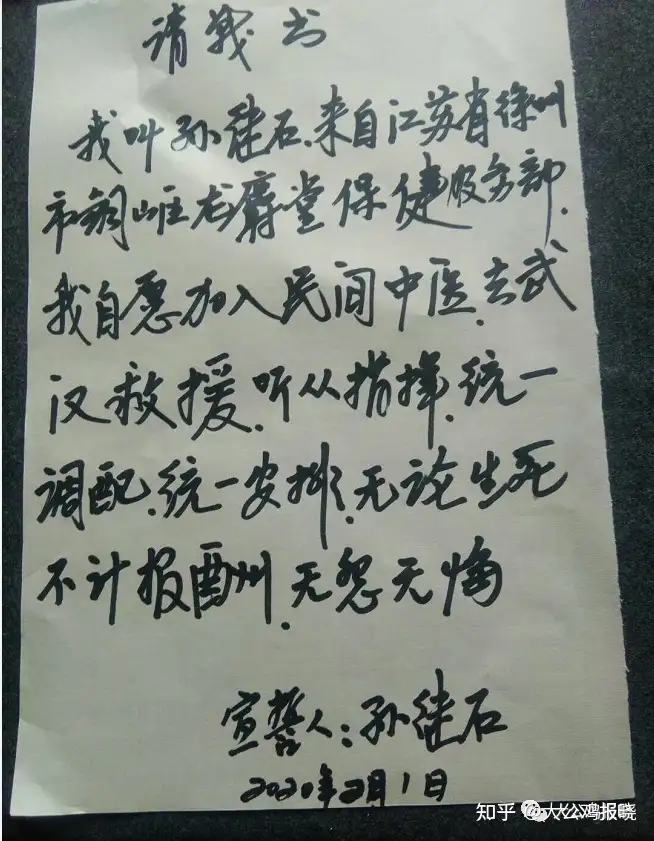 请战书
我叫孙继石.来自江苏省徐州
市铜山区龙麝堂保健服务部.
我自愿加入民间中医.去武
汉救援.听从指挥.统一
调配.统一安排.无论生死
不计报酬.无怨无悔
宣誓人:孙继石
2020年2月1日
知乎 大公鸡报晓